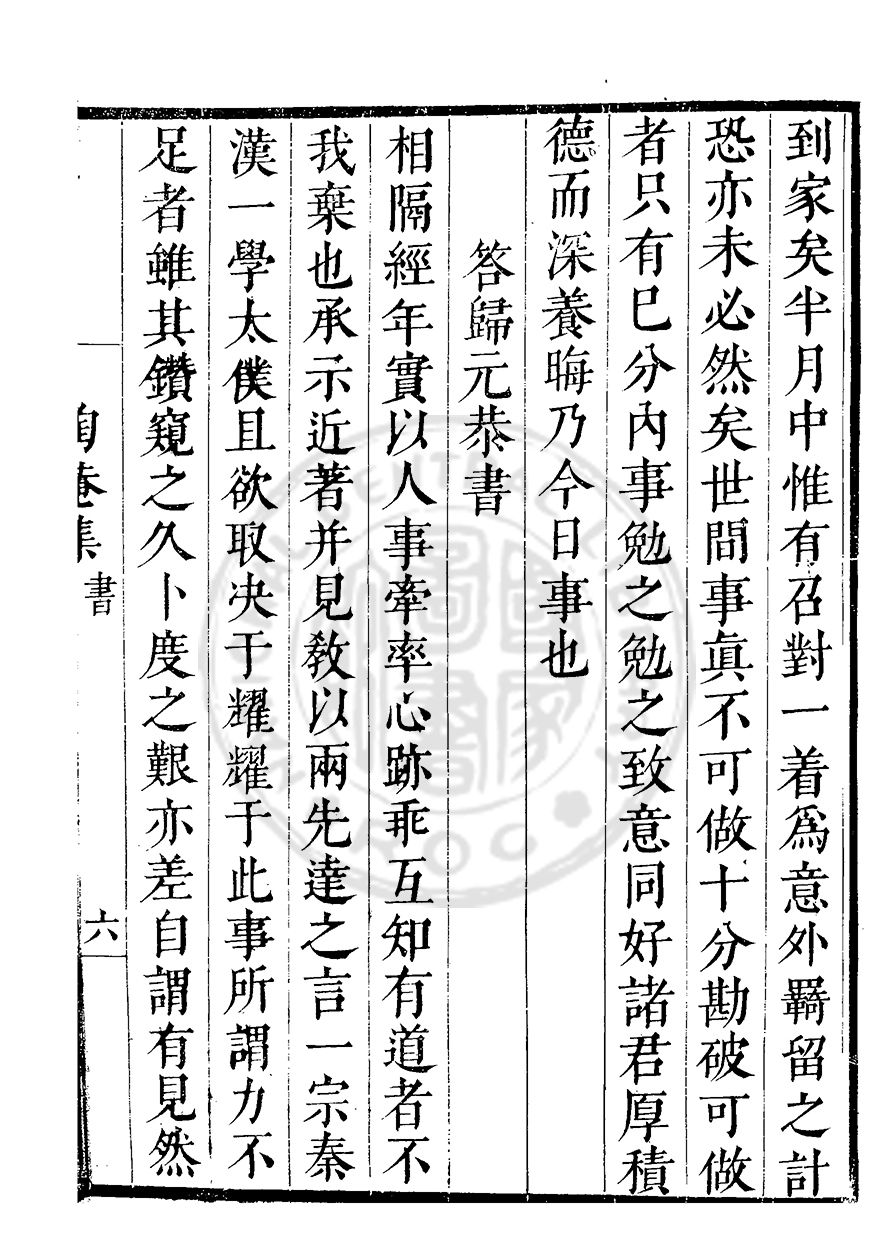 到家矣半月中惟有召對一着爲意外羇留之計
恐亦未必然矣世間事眞不可做十分勘破可做
者只有巳分內事勉之勉之致意同好諸君厚積
德而深養晦乃今日事也
答歸元恭書
相隔經年實以人事牽率心跡乖互知有道者不
我棄也承示近著并見敎以兩先達之言一宗秦
漢一學太僕且欲取决于耀耀于此事所謂力不
足者雖其鑽窺之久卜度之艱亦差自謂有見然
陶菴集
書
六